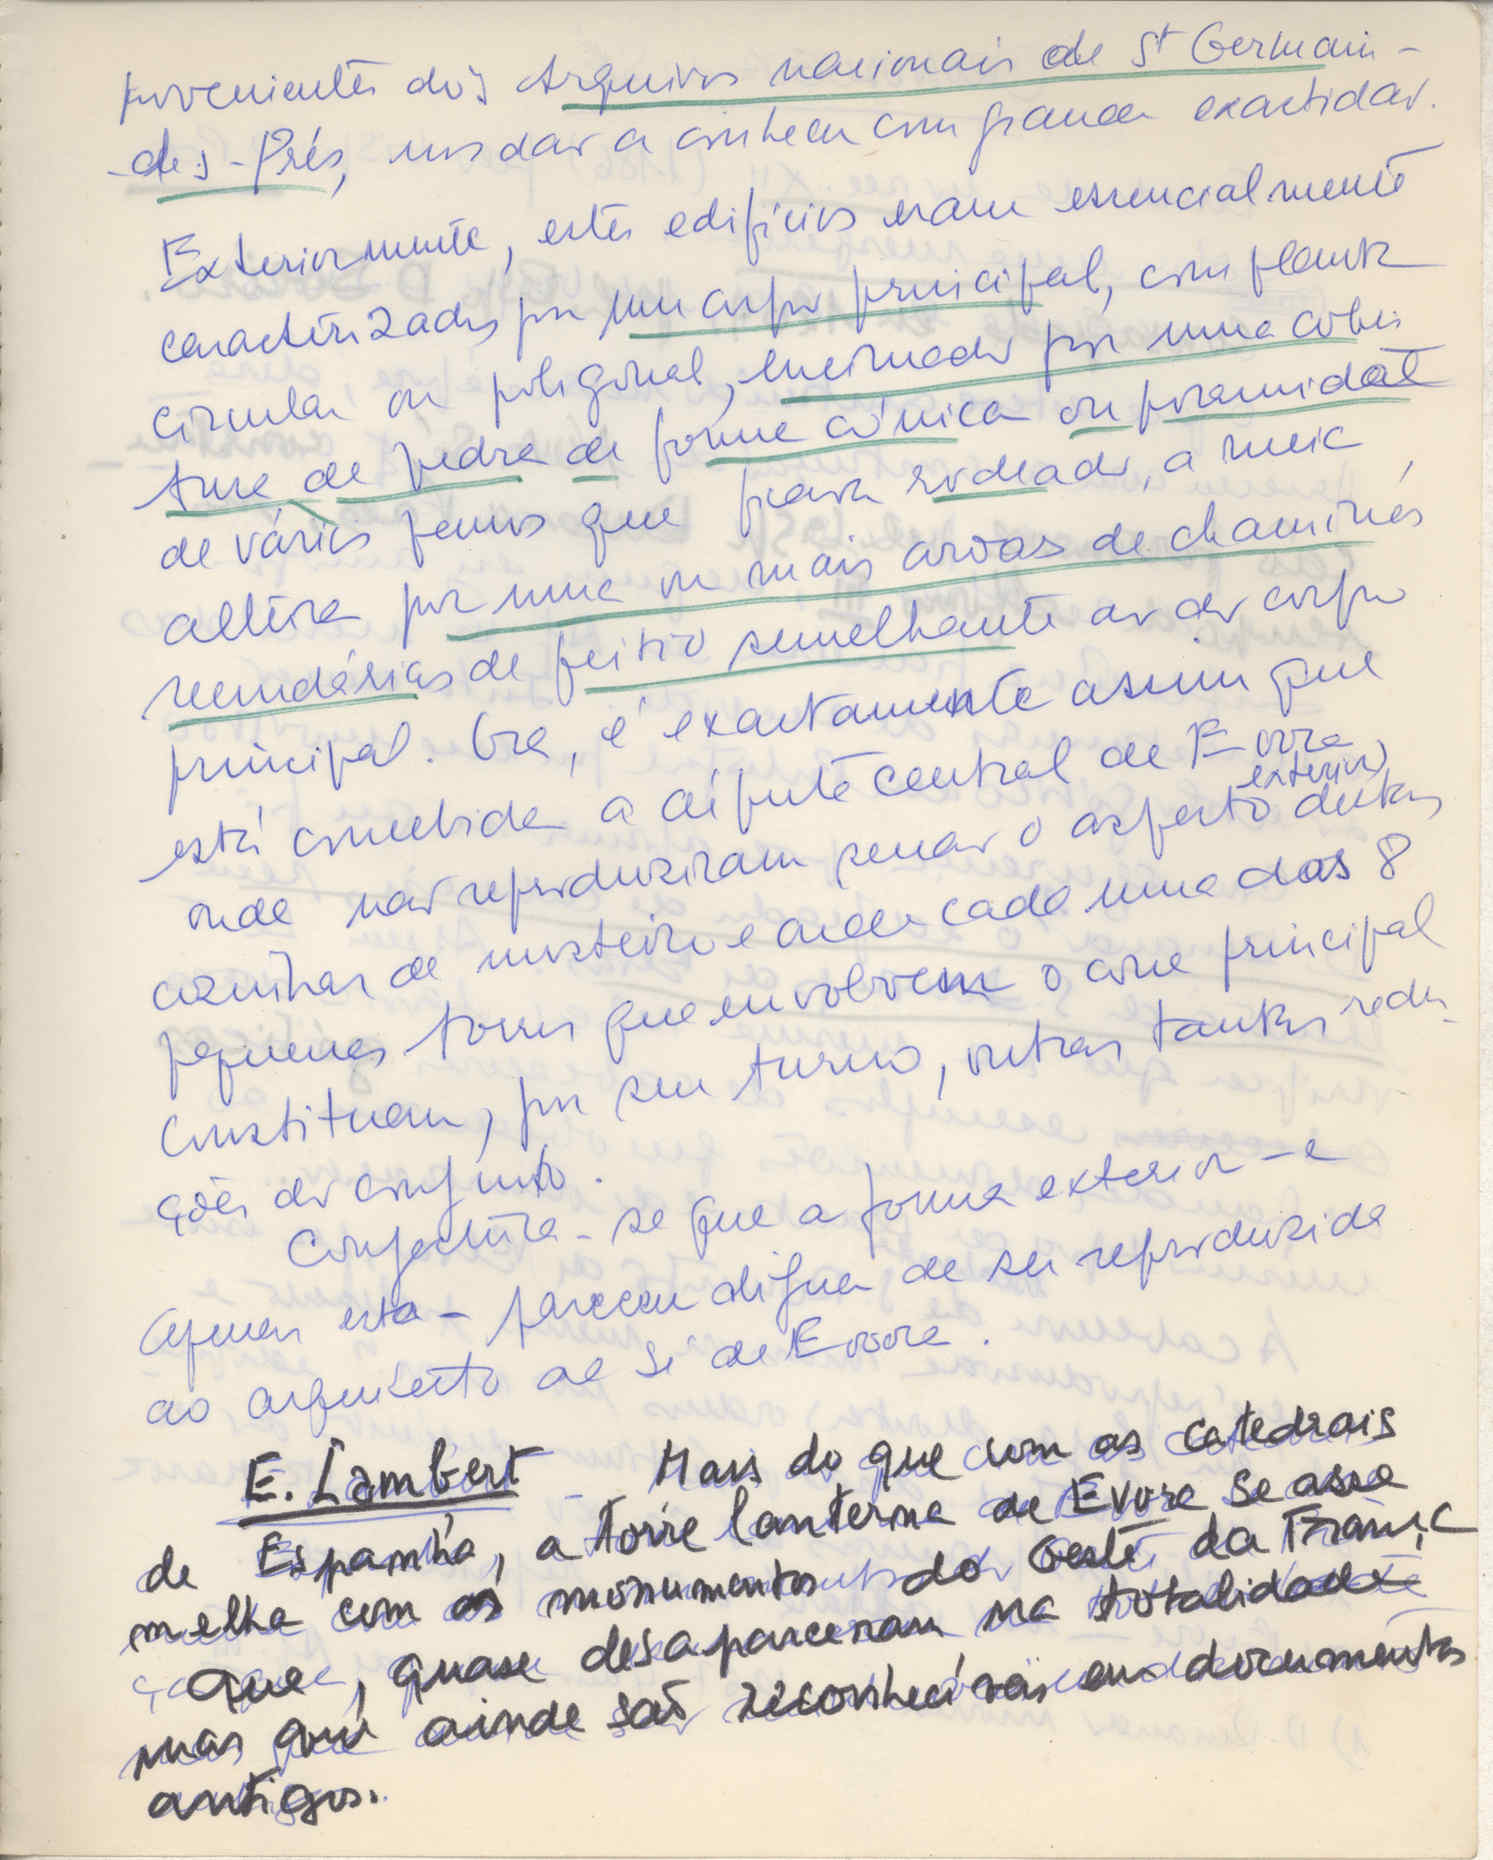 provenientes dos Arquivos nacionais de St Germain-
-des-Prés, nos dar a conhecer com grande exactidão.
Exteriormente, estes edifícios eram essencialmente
caracterizados por um corpo principal, com planta
circular ou poligonal, encimado por uma cober
tura de pedra de forma cónica ou piramidal
de vários panos que ficava rodeado, a meia
altura por uma ou mais coroas de chaminés
secundárias de feitio semelhante ao do corpo
principal. Ora, é exactamente assim que
está concebida a agulha central de Evora
exterior
onde não reproduziram senão o aspecto destas
cozinhas de mosteiro e onde cada uma das 8
pequenas torres que envolvem o cone principal
constituem, por seu turno, outras tantas redu
ções do conjunto.
Conjectura-se que a forma exterior - e
apenas esta - pareceu digna de ser reproduzida
ao arquitecto da Sé de Evora.
E. Lambert - Mais do que com as catedrais
de Espanha, a torre lanterna de Evora se asse
melha com os monumentos do Oeste da França
que, quase desapareceram na totalidade
mas que ainda são reconhecíveis em documentos
antigos.